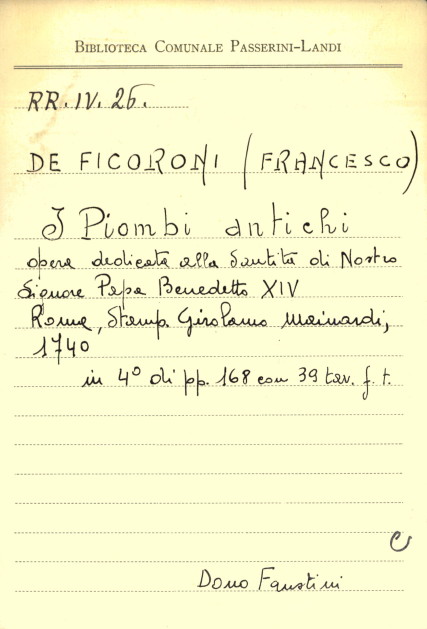 BIBLIOTECA COMUNALE PASSERINI-LANDI
RR. IV. 26.
DE FICORONI (FRANCESCO)
I Piombi antichi
opera dedicata alla Santità di Nostro
Signore Papa Benedetto XIV
Roma, Stamp. Girolamo Mainardi,
1740
in 4° di pp. 168 con 39 tav. f. t.
C
Dono Faustini